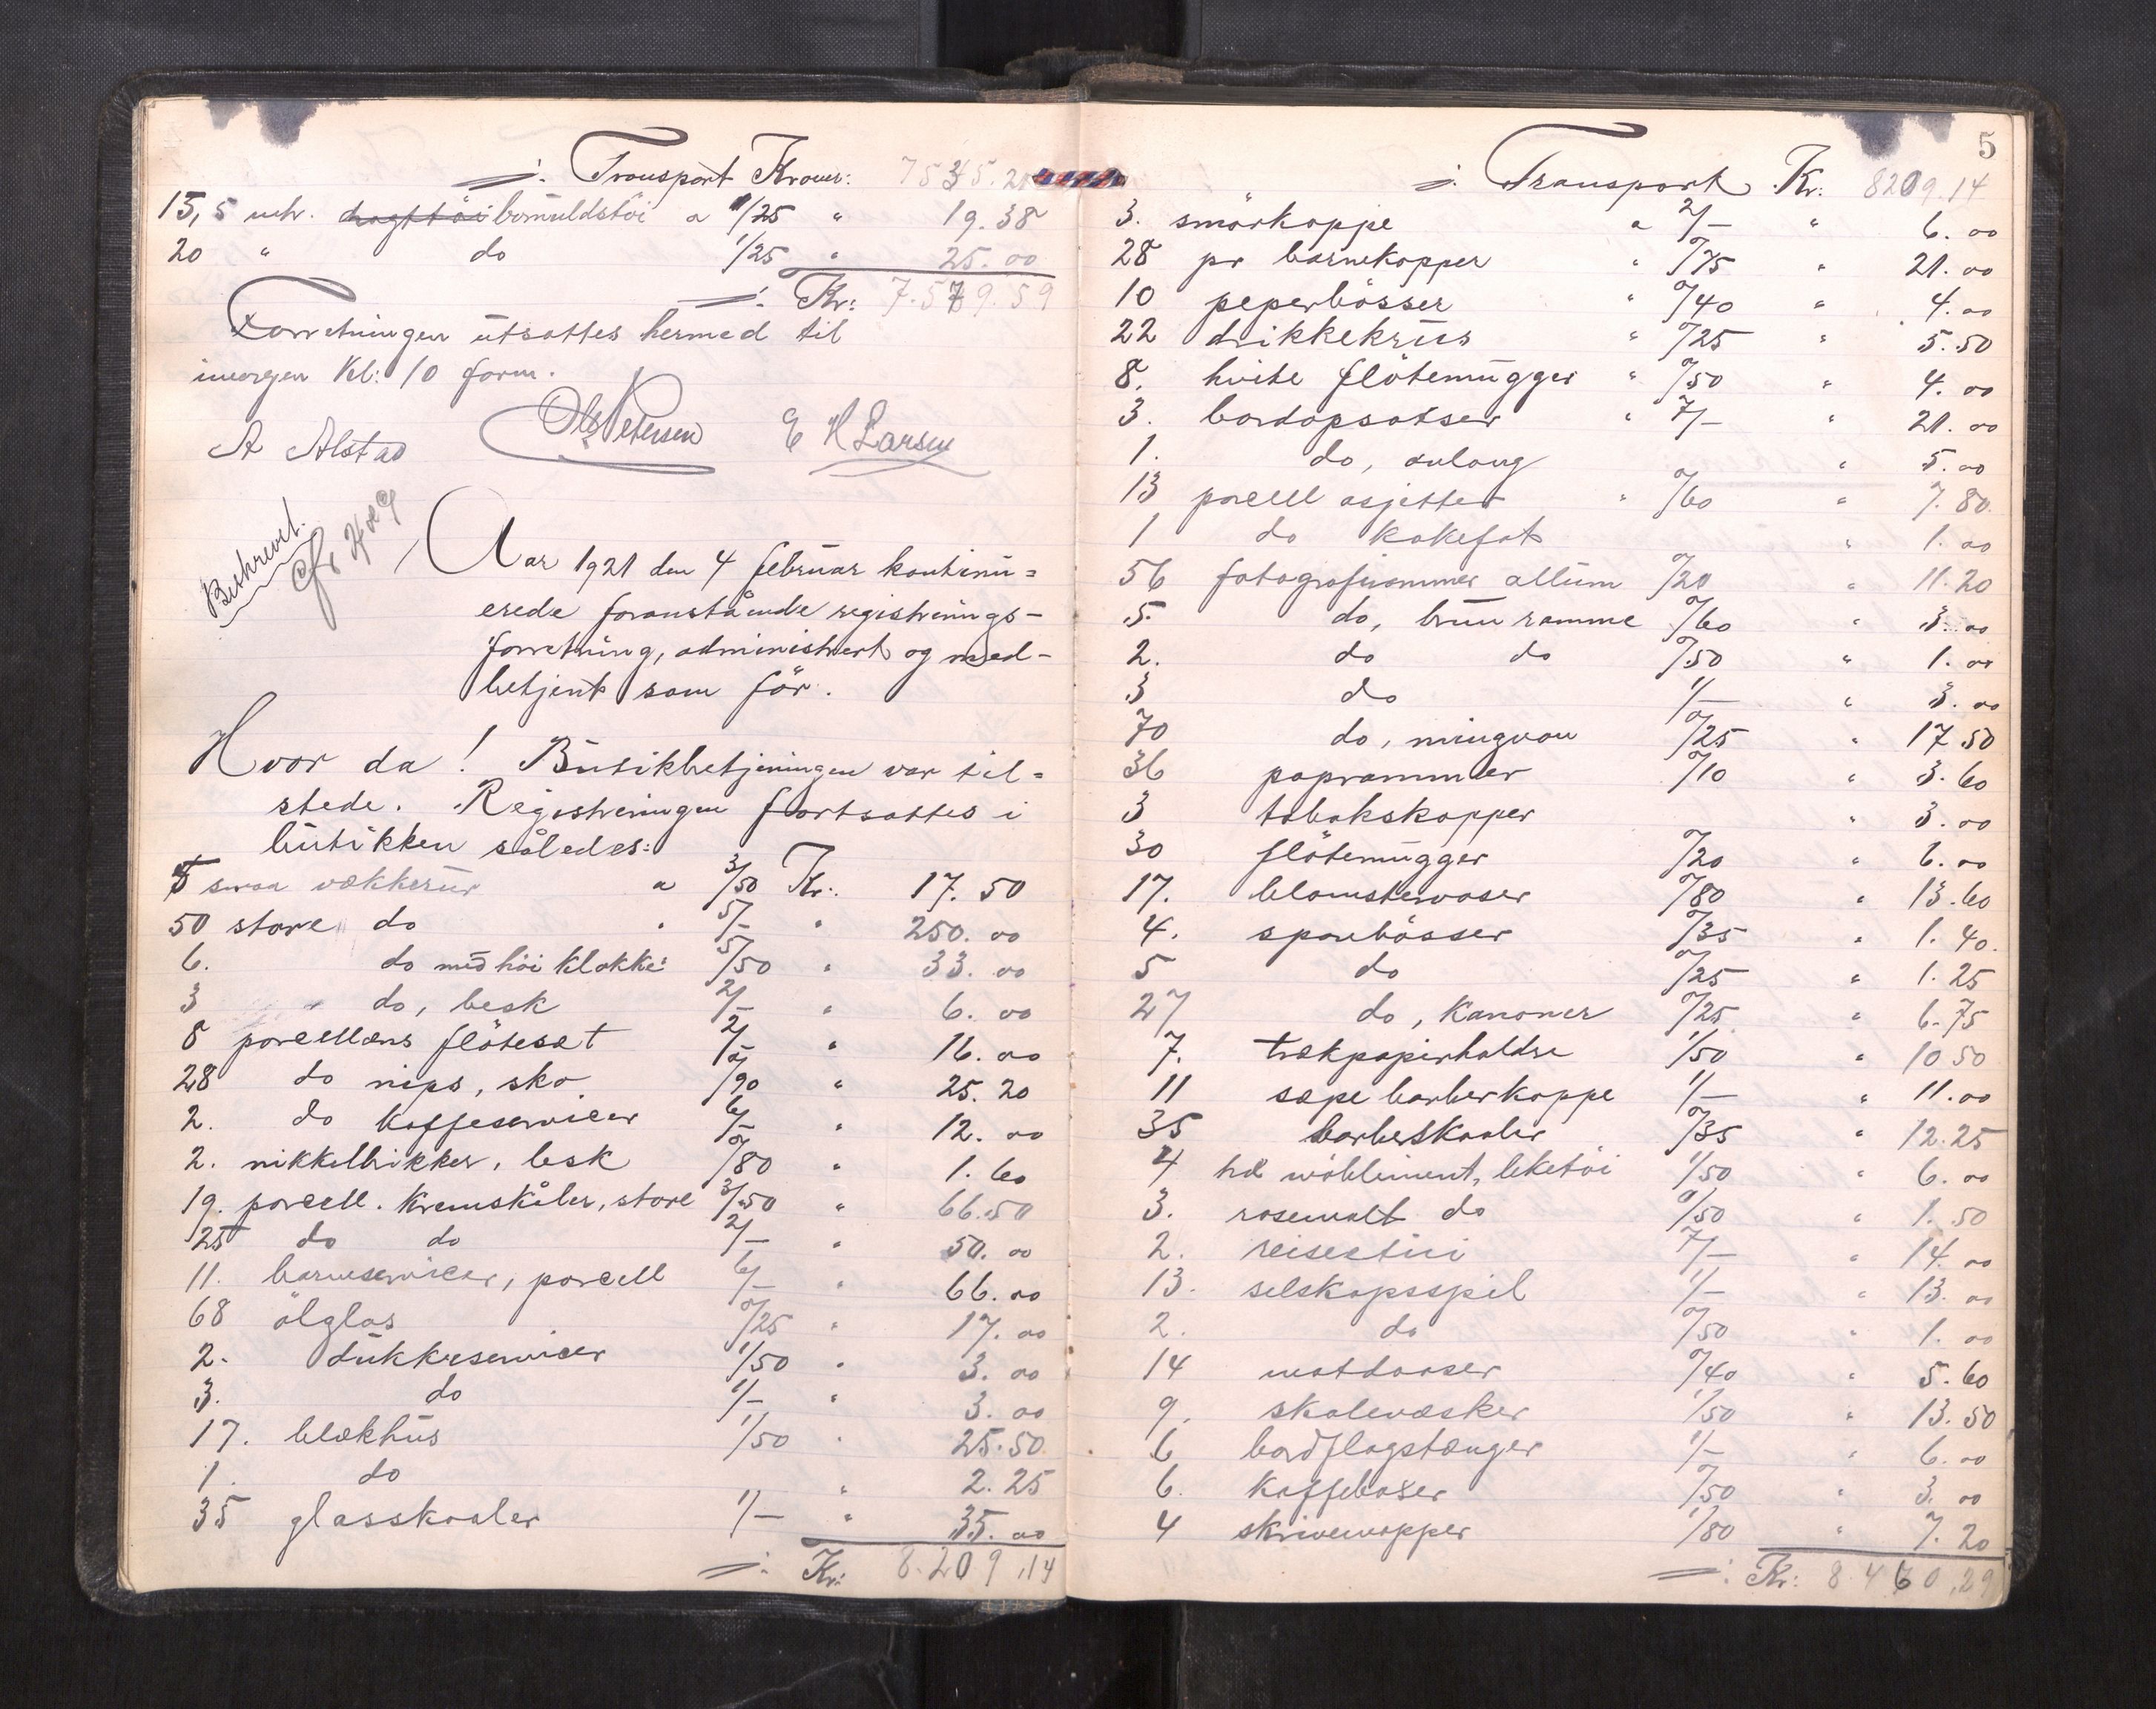 ÷ Transport Kroner: 7535.21
15,5 mtr. dragttöi bomuldstöi a 1/25 " 19.38
20 " do 1/25 " 25.00
÷ Kr: 7.579.59
Forretningen utsattes hermed til
imorgen Kl: 10 form.
A Alstad Ole Petersen E H Larsen
Beskrevet.
Aar 1921 den 4 februar kontinu=
erede foranstående registrerings-
forretning, administrert og med-
betjent som för.
Hvor da! Butikbetjeningen var til=
stede. Registreringen fortsattes i
butikken således:
5 smaa vækkerur a 3/50 Kr: 17.50
50 store do " 5/- " 250.00
6. do med höi klokke 5/50 " 33.00
3 " do, besk 2/- " 6.00
8 porcellæns flötesæt 2/- " 16.00
28 do nips, sko 0/90 " 25.20
2. do kaffeservicer 6/- " 12.00
2. nikkelbrikker, besk 0/80 " 1.60
19. porcell. Kremskåler, store 3/50 " 66.50
25 do do 2/- " 50.00
11. barneservicer, porcell 6/- " 66.00
68 ölglas 0/25 " 17.00
2. dukkeservicer 1/50 " 3.00
3. do 1/- " 3.00
17. blækhus 1/50 " 25.50
1. do " 2.25
35 glasskaaler 1/- " 35.00
÷ Kr: 8.209.14
5
÷ Transport Kr: 8209.14
3. smörkoppe a 2/- " 6.00
28 pr barnekopper " 0/75 " 21.00
10 peperbösser " 0/40 " 4.00
22 drikkekrus " 0/25 " 5.50
8. hvite flötemugger " 0/50 " 4.00
3. bordopsatser " 7/- " 21.00
1. do, avlang " 5.00
13 porcell asjetter " 0/60 " 7.80
1 do kakefat " 1.00
56 fotografirammer allum 0/20 " 11.20
5. do, brun ramme 0/60 " 3.00
2. do do 0/50 " 1.00
3 do 1/- " 3.00
70 do, mingnon 0/25 " 17.50
36 paprammer 0/10 " 3.60
3 tobakskopper " 3.00
30 flötemugger 0/20 " 6.00
17. blomstervaser 0/80 " 13.60
4. sparebösser 0/35 " 1.40
5 do 0/25 " 1.25
27 do, Kanoner 0/25 " 6.75
7. trækpapirholdre 1/50 " 10.50
11 sæpe barberkoppe 1/- " 11.00
35 barberskaaler 0/35 " 12.25
4 hd möblement, leketöi 1/50 " 6.00
3. rosemalt do 0/50 " 1.50
2. reiseetui 7/- " 14.00
13. selskapsspil 1/- " 13.00
2. do 0/50 " 1.00
14 matdaaser 0/40 " 5.60
9. skolevæsker 1/50 " 13.50
6 bordflagstænger 1/- " 6.00
6. kaffebokser 0/50 " 3.00
4 skrivemapper 1/80 " 7.20
÷ Kr: 8.460,29